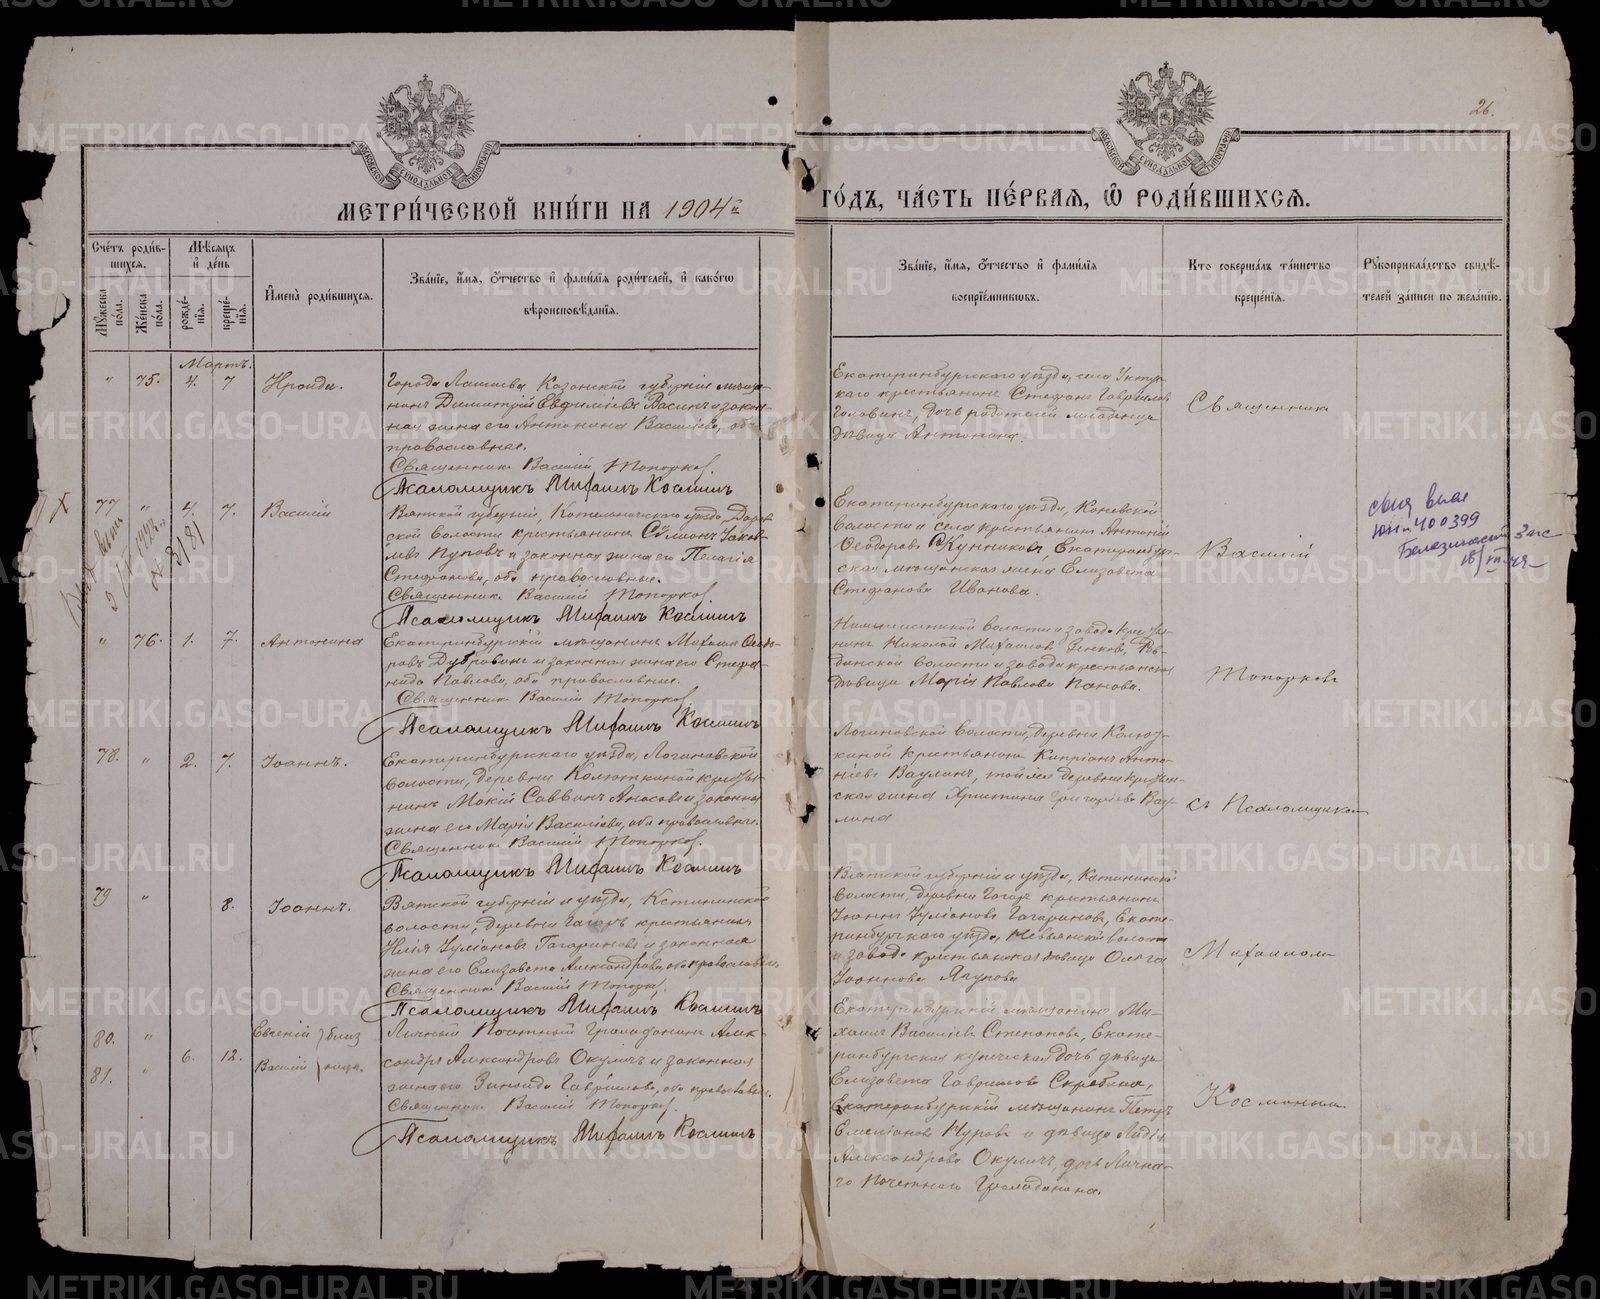 26.
МЕТРИ́ЧЕСКОЙ КНИ́ГИ НА 1904й
ГО́ДЪ, ЧА́СТЬ ПЕ́РВАЯ, Ѡ РОДИ́ВШИХСЯ.
Сче́тъ роди́в-
шихся.
Мѣ́сяцъ
и҆ де́нь
Мꙋ́жеска по́ла.
Же́нска по́ла.
рожде́-
нїя.
креще́-
нїя.
И҆мена̀ роди́вшихся.
Зва́нїе, и҆́мя, ѻ҆́тчество и҆ фами́лїя роди́телей, и҆ како́гѡ
вѣроисповѣ́данїя.
Зва́нїе, и҆́мя, ѻ҆́тчество и҆ фами́лїя
воспрїе́мникѡвъ.
Кто̀ соверша́лъ та́инство
креще́нїя.
Рꙋкоприкла́дство свидѣ́-
телей за́писи по жела́нїю.
Мартъ.
" 75. 4. 7 Ираида.
Города Лаишева Казанской губернiи мѣща-
нинъ Димитрiй Евфимiевъ Васинъ и закон-
ная жена его Антонина Васильева, оба
православные.
Священникъ Василiй Топорковъ.
Псаломщикъ Михаилъ Косминъ
Екатеринбургскаго уѣзда, села Уктус-
скаго крестьянинъ Стефанъ Гаврiиловъ
Головинъ, дочь родителей младенца
дѣвица Антонина.
77 " 4. 7. Василiй
Вятской губернiи, Котельническаго уѣзда,
ской волости крестьянинъ Сѵмеонъ Iаков-
левъ Пуповъ и законная жена его Пелагiя
Стефановна, оба православные.
Священникъ Василiй Топорковъ
Псаломщикъ Михаилъ Косминъ
Екатеринбургскаго уѣзда, Коневской
волости и села крестьянинъ Антонiй
Ѳеодоровъ Скутниковъ, Екатеринбург-
ская мѣщанская жена Елизавета
Стефанова Иванова.
8181
400399
" 76. 1. 7. Антонина
Екатеринбургскiй мѣщанинъ Михаилъ Ѳеодо-
ровъ Дубровинъ и законная жена его Стефа-
нида Павлова, оба православные.
Священникъ Василiй Топорковъ
Псаломщикъ Михаилъ Косминъ
волости и завода крестья-
нинъ Николай Михаиловъ Зенковъ, Рев-
динской волости и завода крестьянская
дѣвица Марiя Павлова Панова.
78. " 2. 7. Iоаннъ.
Екатеринбургскаго уѣзда, Логиновской
волости, деревни Колюткиной крестья-
нинъ Мокiй Саввинъ и законная
жена его Марiя Василiева, оба православные.
Священникъ Василiй Топорковъ.
Псаломщикъ Михаилъ Косминъ
Логиновской волости, деревни Колют-
киной крестьянинъ Кипрiанъ Анто-
нiевъ Ваулинъ, той же деревни крестьян-
ская жена Христина Григорiева Вау-
лина
79 " 8. Iоаннъ.
Вятской губернiи и уѣзда, Кстининской
волости, деревни Гагары крестьянинъ
Илiя Iулiановъ Гагариновъ и законная
жена его Елизавета Александрова, оба православные.
Священникъ Василiй Топорковъ.
Псаломщикъ Михаилъ Косминъ
Вятской губернiи и уѣзда, Кстининской
волости, деревни Гагары крестьянинъ
Iоаннъ Iулiановъ Гагариновъ, Екате-
ринбургскаго уѣзда, Невьянской волости
и завода крестьянская дѣвица Ольга
Iоаннова Ягупова
80. " Евгенiй } близ
6. 12.
81. " Василiй } нецы.
Личный Почетный Гражданинъ Алек-
сандръ Александровъ Окуличъ и законная
жена его Зинаида Гаврiилова, оба православные.
Священникъ Василiй Топорковъ.
Псаломщикъ Михаилъ Косминъ
Екатеринбургскiй мѣщанинъ Ми-
хаилъ Василiевъ Степановъ, Екате-
ринбургская купеческая дочь дѣвица
Елизавета Гаврiилова Скрябина,
Екатеринбургскiй мѣщанинъ Петръ
Емелiановъ Муровъ и дѣвица Лидiя
Александрова Окуличъ, дочь Лична-
го Почетнаго Гражданина.
Священникъ
Василiй
Топорковъ
съ Псаломщикомъ
Михаиломъ
Косминымъ
METRIKI.GASO-URAL.RU